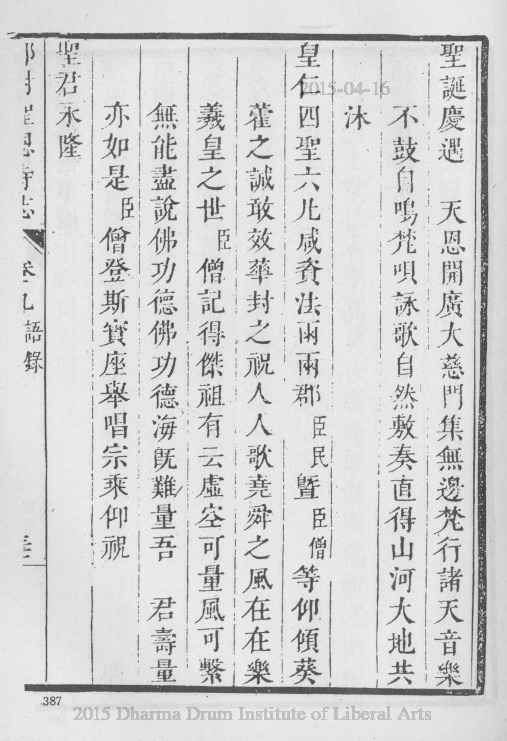 聖誕慶遇　天恩開廣大慈門集無邊梵行諸天音樂
不鼓自鳴梵唄詠歌自然敷奏直得山河大地共
沐
皇仁四聖六凡咸資法雨兩郡臣民暨臣僧等仰傾葵
藿之誠敢效華封之祝人人歌堯舜之風在在樂
羲皇之世臣僧記得傑祖有云虛空可量風可繫
無能盡說佛功德佛功德海既難量吾　君壽量
亦如是臣僧登斯寳座舉唱宗乘仰祝
聖君永隆
恩寺志　卷九　語錄
2015-04-16
387
2015 Dharma Drum Institute of Liberal Arts